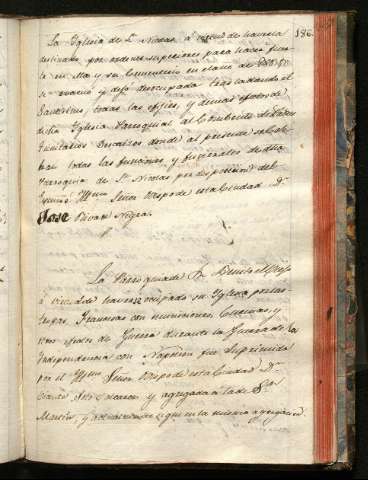 186.
La Yglesia de Sn. Nicolas á causa de haverla
destinado por orden superior para hacer fuerte
en ella y su Cementerio en el año de
se cerró y dejó desocupada trasladando el
Santisimo, todas las efijies, y demas efectos de
dicha Yglesia Parroquial al Combento de
Trinitarios Descalzos donde al presente se celebran
todas las funciones, y funerales de dicha
Parroquia de Sn. Nicolas por disposicion del
Ylmo. Señor Obispo de esta Ciudad Dn.
Jose
La Parroquia de Sn. Benito el
á de haver ocupado su Yglesia por las
tropas Francesas con municiones y
otros efectos de Guerra durante la Guerra de la
Independencia con Napoleon fue Suprimida
por el Yllmo. Señor Obispo de esta Ciudad Dn.
y agregada á la de Sn.
Martin, y actualmente sigue en la misma agregacion